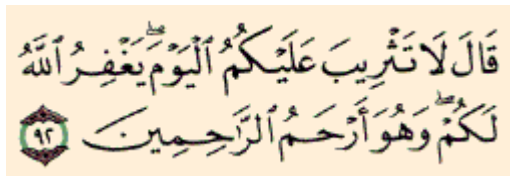 قَالَ لَا تَثْرِيبَ عَلَيْكُمُ ٱلْيَوْمَ ۖ يَغْفِرُ ٱللَّهُ
لَكُمْ ۖ وَهُوَ أَرْحَمُ ٱلرَّٰحِمِينَ ٩٢